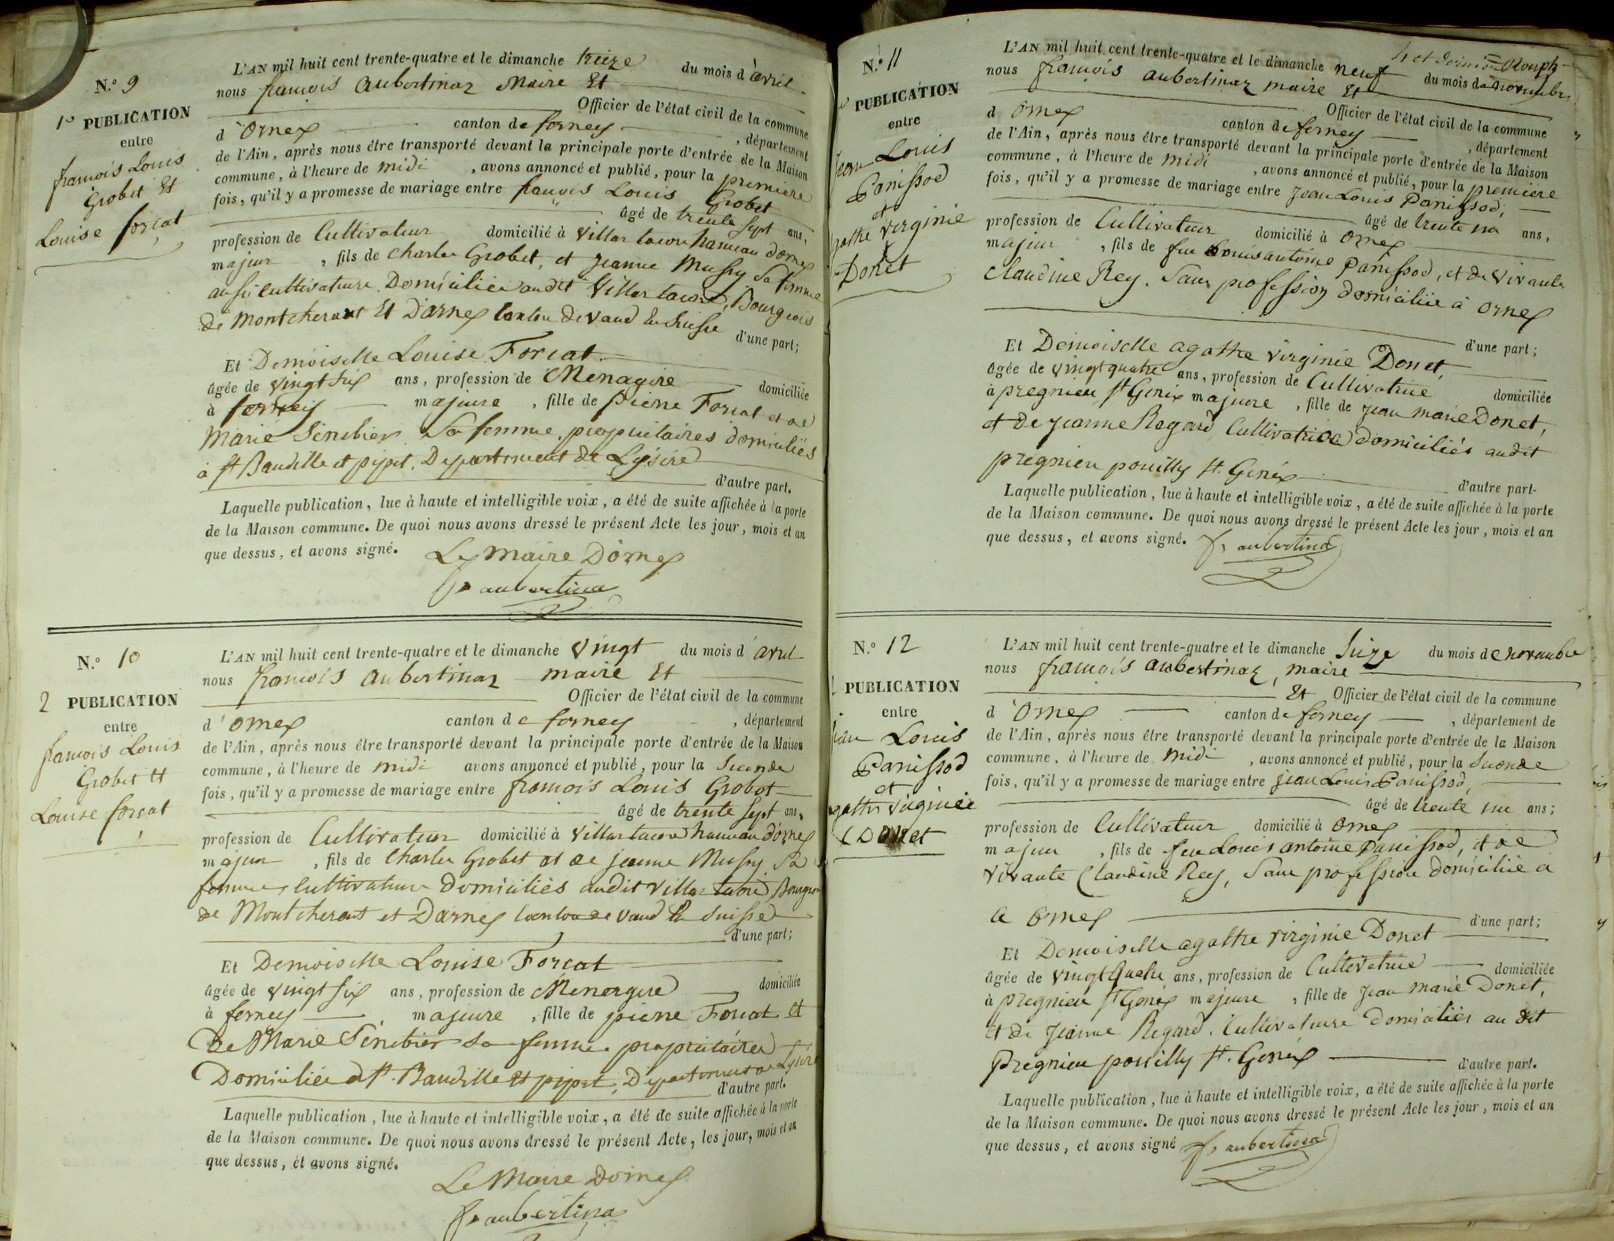 N.º 9
1re PUBLICATION
entre
françois Louis
Grobet Et
Louise forçat
L'AN mil huit cent trente-quatre et le dimanche treize du mois d'avril
nous françois aubertinaz Maire Et
Officier de l'état civil de la commune
d'Ornex canton de ferney, département
de l'Ain, après nous être transporté devant la principale porte d'entrée de la Maison
commune, à l'heure de midi, avons annoncé et publié, pour la première
fois, qu'il y a promesse de mariage entre françois Louis Grobet
âgé de trente sept ans,
profession de Cultivateur domicilié à Villar tacon hameau dornex
majeur, fils de Charles Grobet, et jeanne Mussy Sa femme
aussi cultivateurs, Domiciliés audit Villar tacon, Bourgeois
de Montcherant Et Darnex Canton de vaud En Suisse
d'une part;
Et Demoiselle Louise Forcat
âgée de vingt six ans, profession de Menagere domiciliée
à ferney majeure, fille de pierre Forcat et de
Marie Sénebier Sa femme, propriétaires domiciliés
à St Baudille et pipet, Departement de Lysère
d'autre part.
Laquelle publication, lue à haute et intelligible voix, a été de suite affichée à la porte
de la Maison commune. De quoi nous avons dressé le présent Acte les jour, mois et an
que dessus, et avons signé.
Le Maire Dornex
fs aubertinaz
N.º 10
2 PUBLICATION
entre
françois Louis
Grobet Et
Louise forcat
L'AN mil huit cent trente-quatre et le dimanche vingt du mois d'avril
nous françois aubertinaz maire Et
Officier de l'état civil de la commune
d'Ornex canton de ferney, département
de l'Ain, après nous être transporté devant la principale porte d'entrée de la Maison
commune, à l'heure de midi avons annoncé et publié, pour la Seconde
fois, qu'il y a promesse de mariage entre françois Louis Grobet
âgé de trente sept ans,
profession de Cultivateur domicilié à Villar tacon hameau dornex
majeur, fils de Charles Grobet et de jeanne Mussy Sa
femme, Cultivateurs domiciliés audit Villar tacon, Bourgeois
de Montcherant et Darnex Canton de vaud En Suisse
d'une part;
Et Demoiselle Louise Forcat
âgée de vingt six ans, profession de Menagere domiciliée
à ferney majeure, fille de pierre Forcat et
De Marie Sénebier Sa femme propriétaires
Domiciliés à St. Baudille Et pipet, Departement de Lysère
d'autre part.
Laquelle publication, lue à haute et intelligible voix, a été de suite affichée à la porte
de la Maison commune. De quoi nous avons dressé le présent Acte, les jour, mois et an
que dessus, et avons signé.
Le Maire Dornex
fs aubertinaz
N.º 11
PUBLICATION
entre
Jean Louis
Panissod
et
agathe virginie
Donet
L'AN mil huit cent trente-quatre et le dimanche neuf du mois de novembre
nous françois aubertinaz maire Et
Officier de l'état civil de la commune
d'Ornex canton de ferney, département
de l'Ain, après nous être transporté devant la principale porte d'entrée de la Maison
commune, à l'heure de midi, avons annoncé et publié, pour la première
fois, qu'il y a promesse de mariage entre Jean Louis Panissod,
âgé de trente un ans,
profession de Cultivateur domicilié à Ornex
majeur, fils de feu Louis antoine Panissod, et de Vivante
Claudine Rey, Sans profession domiciliée à Ornex
d'une part;
Et Demoiselle agathe virginie Donet,
âgée de vingt quatre ans, profession de Cultivatrice domiciliée
à pregnieu St Genix majeure, fille de Jean marie Donet,
et de jeanne Regard Cultivatrice domiciliés audit
pregnieu pouilly St. Genix
d'autre part.
Laquelle publication, lue à haute et intelligible voix, a été de suite affichée à la porte
de la Maison commune. De quoi nous avons dressé le présent Acte les jour, mois et an
que dessus, et avons signé. fs aubertinaz
N.º 12
PUBLICATION
entre
jean Louis
Panissod
et
agathe virginie
Donet
L'AN mil huit cent trente-quatre et le dimanche Seize du mois de novembre
nous françois aubertinaz, maire
Et Officier de l'état civil de la commune
d'Ornex canton de ferney, département de
de l'Ain, après nous être transporté devant la principale porte d'entrée de la Maison
commune, à l'heure de midi, avons annoncé et publié, pour la Seconde
fois, qu'il y a promesse de mariage entre Jean Louis Panissod,
âgé de trente un ans;
profession de Cultivateur domicilié à Ornex
majeur, fils de feu Louis antoine Panissod, et de
Vivante Claudine Rey, Sans profession domiciliée a
a Ornex
d'une part;
Et Demoiselle agathe virginie Donet
âgée de vingt quatre ans, profession de Cultivatrice domiciliée
à pregnieu St Genix majeure, fille de Jean marie Donet,
et de Jeanne Regard, Cultivateurs domiciliés au dit
Pregnieu pouilly St. Genix
d'autre part.
Laquelle publication, lue à haute et intelligible voix, a été de suite affichée à la porte
de la Maison commune. De quoi nous avons dressé le présent Acte les jour, mois et an
que dessus, et avons signé fs aubertinaz